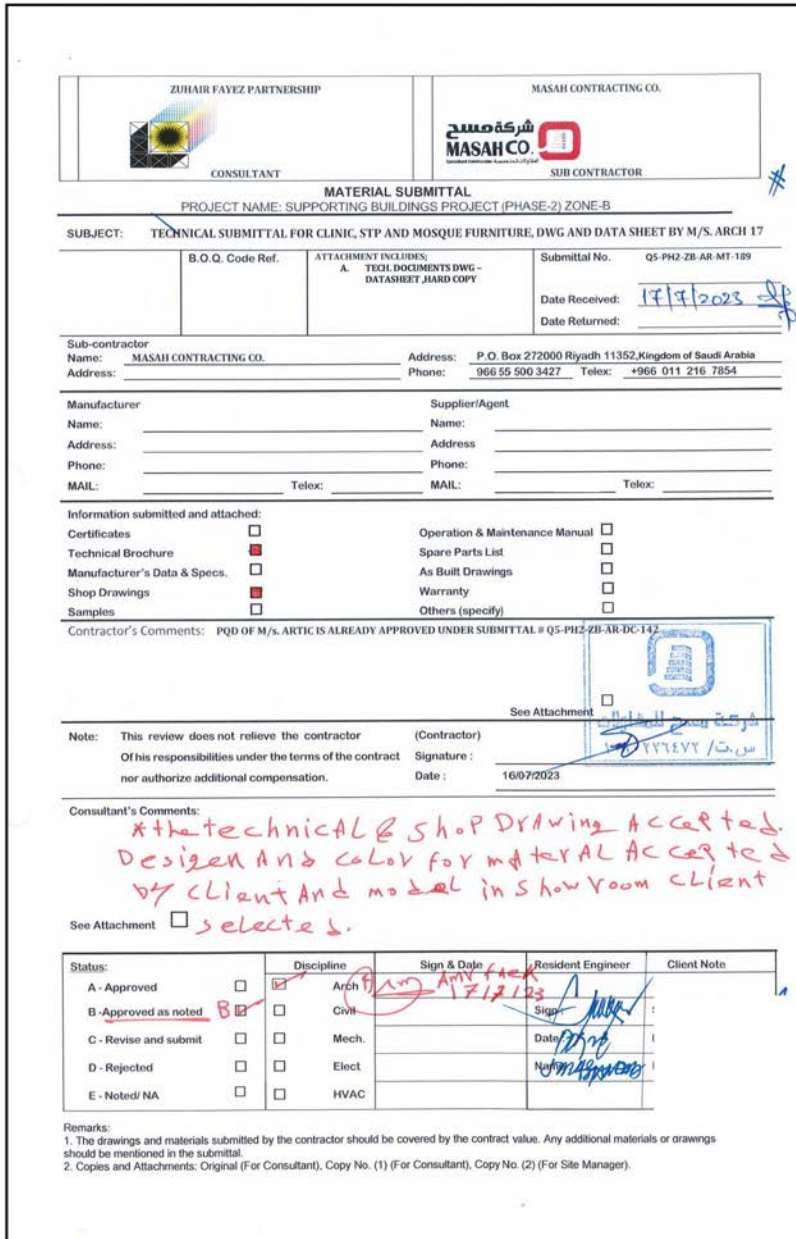 ZUHAIR FAYEZ PARTNERSHIP
CONSULTANT
MASAH CONTRACTING CO.
شركة مسح
MASAH CO.
SUB CONTRACTOR
#
MATERIAL SUBMITTAL
PROJECT NAME: SUPPORTING BUILDINGS PROJECT (PHASE-2) ZONE-B
SUBJECT: TECHNICAL SUBMITTAL FOR CLINIC, STP AND MOSQUE FURNITURE, DWG AND DATA SHEET BY M/S. ARCH 17
B.O.Q. Code Ref.
ATTACHMENT INCLUDES;
A. TECH. DOCUMENTS DWG –
DATASHEET ,HARD COPY
Submittal No. Q5-PH2-ZB-AR-MT-189
Date Received: 17/7/2023
Date Returned:
Sub-contractor
Name: MASAH CONTRACTING CO. Address: P.O. Box 272000 Riyadh 11352,Kingdom of Saudi Arabia
Address: Phone: 966 55 500 3427 Telex: +966 011 216 7854
Manufacturer Supplier/Agent
Name: Name:
Address: Address
Phone: Phone:
MAIL: Telex: MAIL: Telex:
Information submitted and attached:
Certificates Operation & Maintenance Manual
Technical Brochure Spare Parts List
Manufacturer's Data & Specs. As Built Drawings
Shop Drawings Warranty
Samples Others (specify)
Contractor's Comments: PQD OF M/s. ARTIC IS ALREADY APPROVED UNDER SUBMITTAL # Q5-PH2-ZB-AR-DC-142
See Attachment
شركة مسح للمقاولات
Note: This review does not relieve the contractor (Contractor)
Of his responsibilities under the terms of the contract Signature :
nor authorize additional compensation. Date : 16/07/2023
Consultant's Comments:
* the technicAL & ShoP DrAwing Accepted.
Desigen And color for materAL Accepted
by client And model in showroom client
See Attachment selected.
Status: Discipline Sign & Date Resident Engineer Client Note
A - Approved Arch 17/7/23
B -Approved as noted B Civil Sign
C - Revise and submit Mech. Date
D - Rejected Elect Name
E - Noted/ NA HVAC
Remarks:
1. The drawings and materials submitted by the contractor should be covered by the contract value. Any additional materials or drawings
should be mentioned in the submittal.
2. Copies and Attachments: Original (For Consultant), Copy No. (1) (For Consultant), Copy No. (2) (For Site Manager).